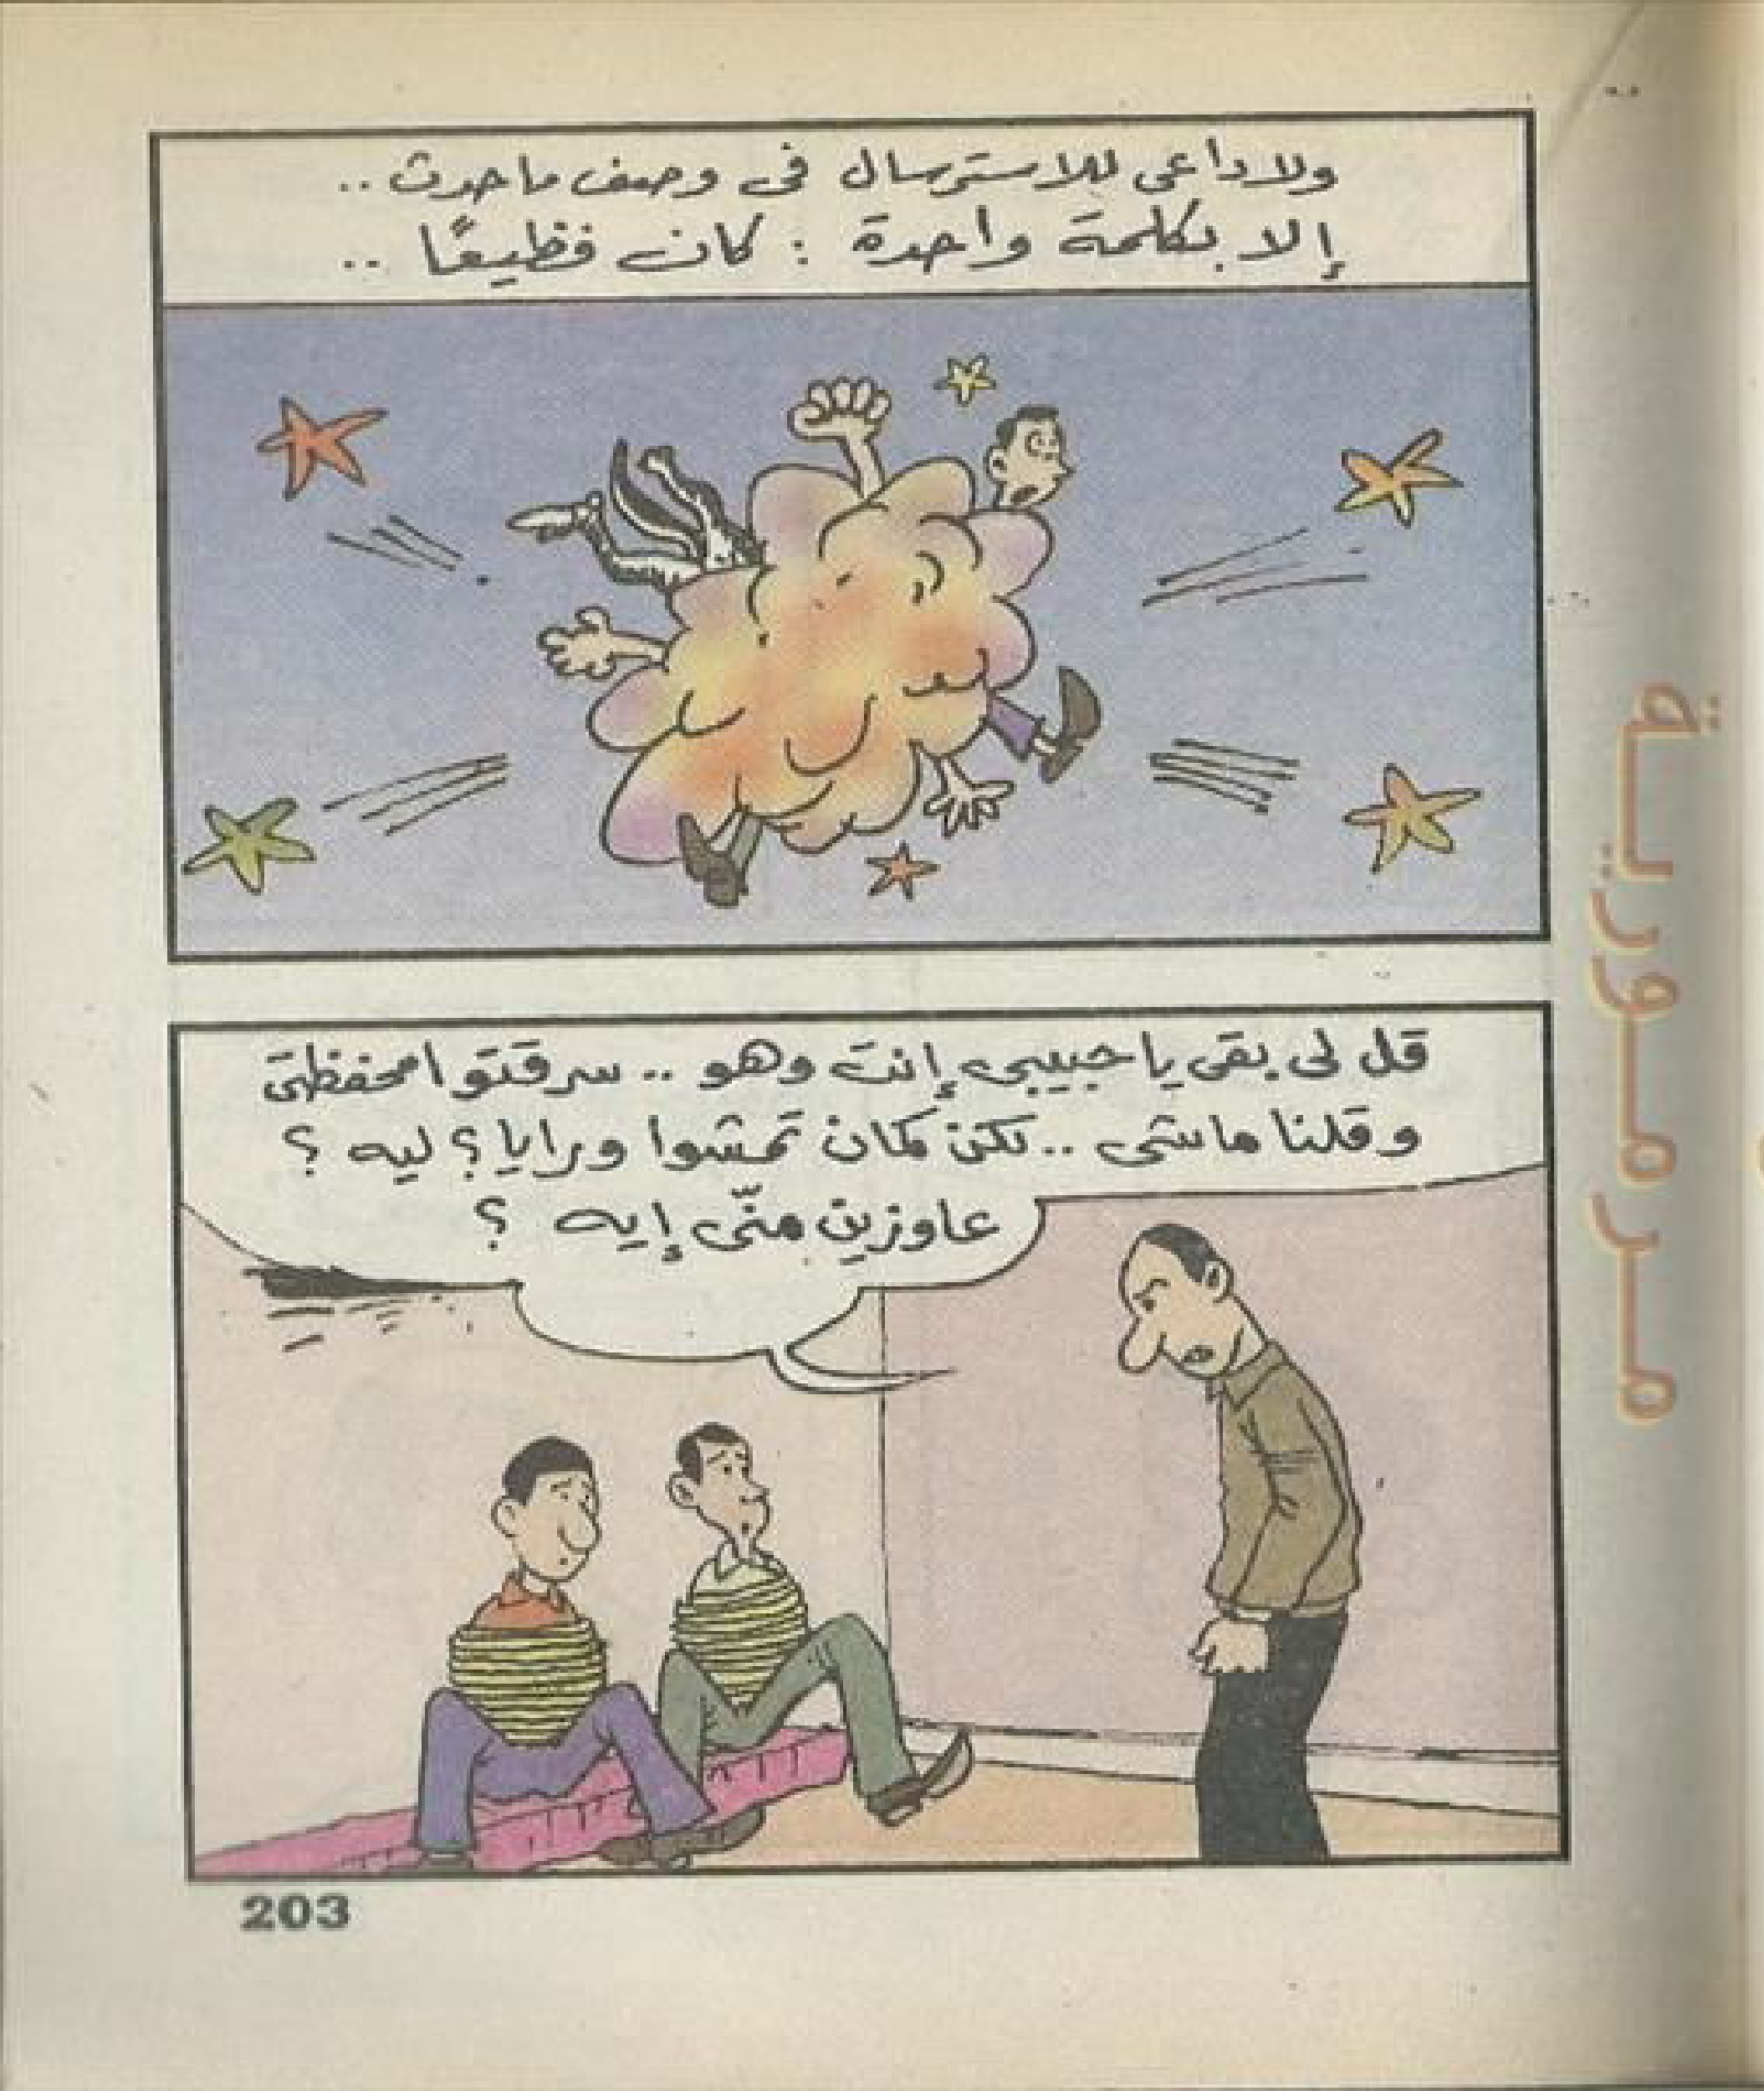 ولاداعى للاسترسال فى وصف ما حدث ..
إلا بكلمة واحدة : كان فظيعًا ..
قل لى بقى يا حبيبى إنت وهو .. سرقتوا محفظتى
وقلنا ماشى .. لكن كمان تمشوا ورايا ؟ ليه ؟
عاوزين منّى إيه ؟
203
مرمورية